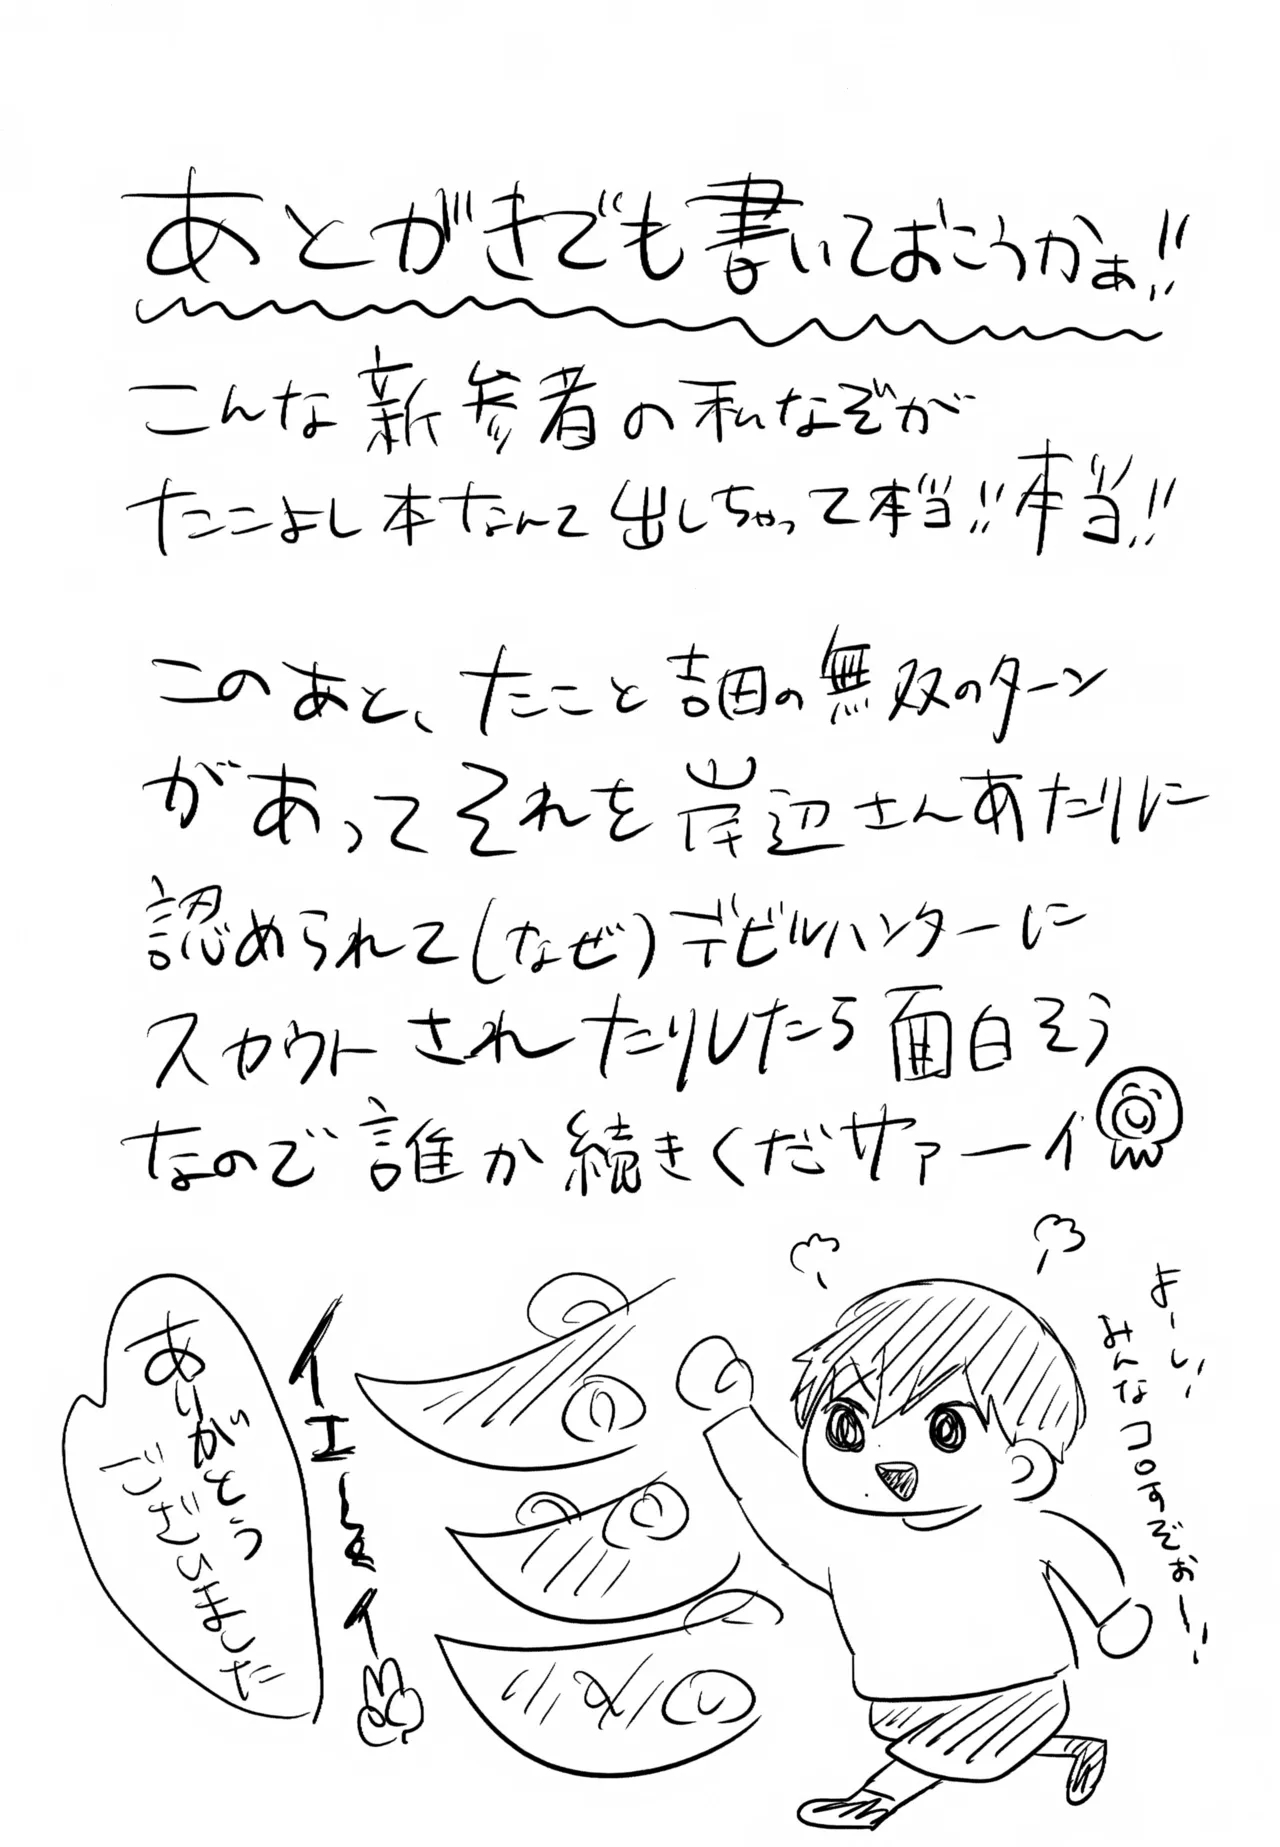 あとがきでも書いておこうかぁ!!
こんな新参者の私なぞが
たこよし本なんて出しちゃって本当!!本当!!
このあと、たこと吉田の無双のターン
があってそれを岸辺さんあたりに
認められて(なぜ)デビルハンターに
スカウトされたりしたら面白そう
なので誰か続きくだサァーイ
よーし!
みんなコロすぞぉー!
イエーイ
あーがとう
ございました